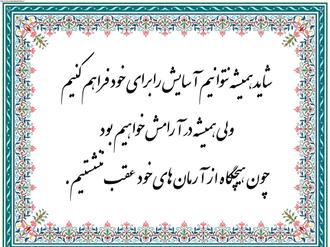 شاید همیشه نتوانیم آسایش را برای خود فراهم کنیم
ولی همیشه در آرامش خواهیم بود
چون هیچگاه از آرمان های خود عقب ننشستیم.